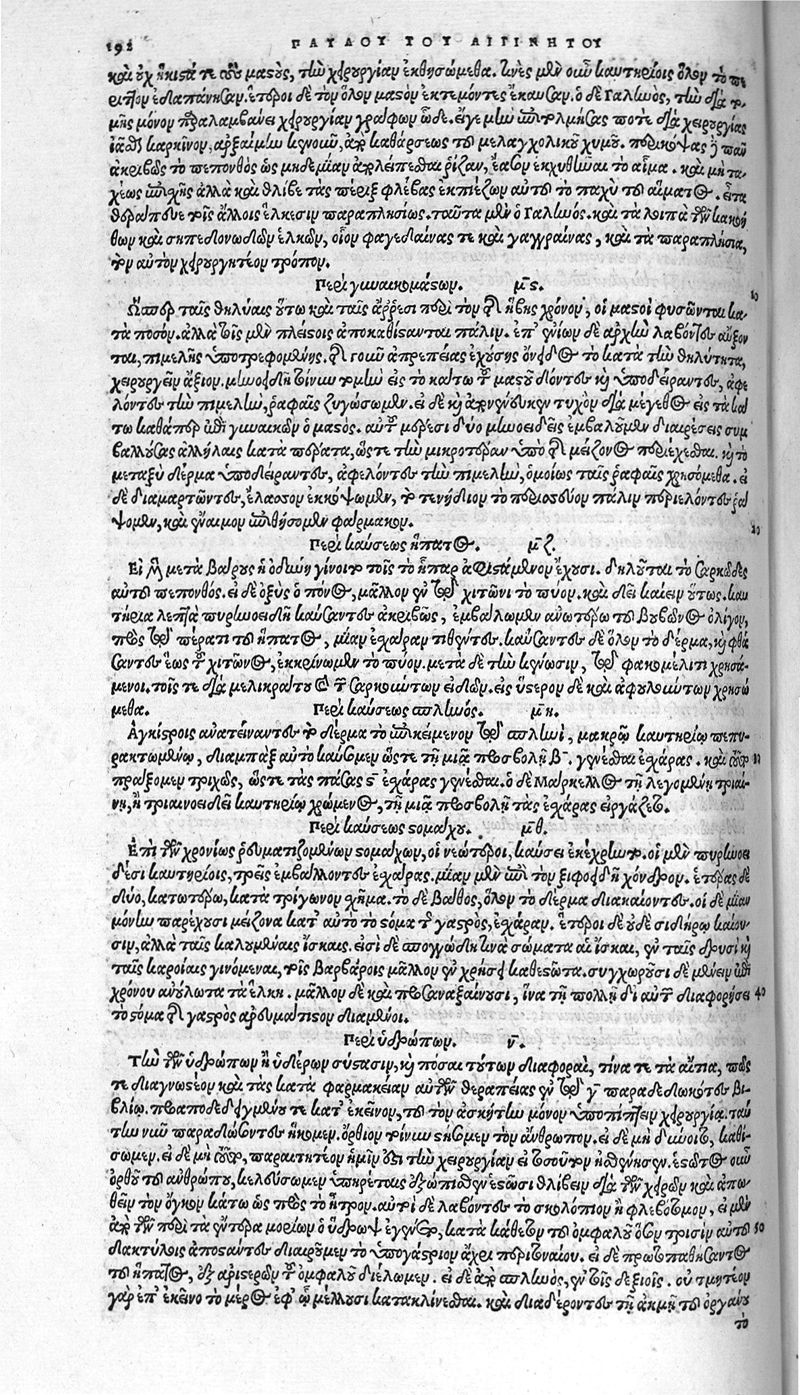 192 ΠΑΥΛΟΥ ΤΟΥ ΑΙΓΙΝΗΤΟΥ
καὶ οὐχ ἥκιστά τε τοῦ μαστοῦ, τὴν χειρουργίαν ἐκθησώμεθα. τινὲς μὲν οὖν καυτηρίοις ὅλον τὸ πε
ριττὸν ἐδαπάνησαν. ἕτεροι δὲ τὸν ὅλον μαστὸν ἐκτεμόντες ἔκαυσαν. ὁ δὲ Γαληνὸς, τὴν διὰ το
μῆς μόνον παραλαμβάνει χειρουργίαν γράφων ὧδε. εἴγε μὴν τολμήσας ποτὲ διὰ χειρουργίας
ἰᾶσθαι καρκίνον, ἄρξαι μὲν κενοῦν, ἀπὸ καθάρσεως τοῦ μελαγχολικοῦ χυμοῦ. περικόψας δὲ πᾶν
ἀκριβῶς τὸ πεπονθὸς ὡς μηδεμίαν ἀπολείπεσθαι ῥίζαν, ἔασον ἐκχυθῆναι τὸ αἷμα. καὶ μὴ τα
χέως ἐπίσχῃς ἀλλὰ καὶ θλίβε τὰς πέριξ φλέβας ἐκπιέζων αὐτῶν τὸ παχὺ τοῦ αἵματος. εἶτα
θεράπευε τοῖς ἄλλοις ἕλκεσιν παραπλησίως. ταῦτα μὲν ὁ Γαληνός. καὶ τὰ λοιπὰ τῶν κακοή
θων καὶ σηπεδονωδῶν ἑλκῶν, οἷον φαγεδαίνας τε καὶ γαγγραίνας, καὶ τὰ παραπλήσια,
τὸν αὐτὸν χειρουργητέον τρόπον.
Περὶ γυναικομάστων. μϛ.
Ὥσπερ ταῖς θηλείαις οὕτω καὶ ταῖς ἄρρεσι περὶ τὸν τῆς ἥβης χρόνον, οἱ μαστοὶ φυσῶνται κα
τὰ ποσόν. ἀλλὰ τοῖς μὲν πλείστοις ἀποκαθίστανται πάλιν. ἐπ' ἐνίων δὲ ἀρχὴν λαβόντες αὔξον
ται, πιμελῆς ὑποτρεφομένης. τῆς γοῦν ἀπρεπείας ἐχούσης ὄνειδος τὸ κατὰ τὴν θηλύτητα,
χειρουργεῖν ἄξιον. μηνοειδῆ τοίνυν τομὴν εἰς τὸ κάτω τοῦ μαστοῦ δόντες καὶ ὑποδείραντες, ἀφε
λόντες τὴν πιμελὴν, ῥαφαῖς ζυγώσωμεν. εἰ δὲ καὶ ἀπονεύσειεν τυχὸν διὰ μέγεθος εἰς τὰ κά
τω καθάπερ ἐπὶ γυναικῶν ὁ μαστὸς. αὐτοῦ μέρεσι δύο μηνοειδεῖς ἐμβαλοῦμεν διαιρέσεις συμ
βαλλούσας ἀλλήλαις κατὰ πέρατα, ὥστε τὴν μικροτέραν ὑπὸ τῆς μείζονος περιέχεσθαι. καὶ τὸ
μεταξὺ δέρμα ὑποδείραντες, ἀφελόντες τὴν πιμελὴν, ὁμοίως ταῖς ῥαφαῖς χρησόμεθα. εἰ
δὲ διαμαρτῶντες, ἔλασσον ἐκκόψωμεν, τὸ τηνήδιον τὸ περισσεῦον πάλιν περιελόντες ῥά
ψομεν, καὶ ἔναιμον ἐπιθήσομεν φάρμακον.
Περὶ καύσεως ἥπατος. μζ.
Εἰ μὲν μετὰ βάρους ἡ ὀδύνη γίνοιτο τοῖς τὸ ἧπαρ ἀφιστάμενον ἔχουσι. δηλοῦται τὸ σαρκῶδες
αὐτοῦ πεπονθός. εἰ δὲ ὀξὺς ὁ πόνος, μᾶλλον ἐν τῷ χιτῶνι τὸ πῦον. καὶ δεῖ καίειν οὕτως. καυ
τήρια λεπτὰ πυρηνοειδῆ καύσαντες ἀκριβῶς, ἐμβάλωμεν ἀνωτέρω τοῦ βουβῶνος ὀλίγον,
πρὸς τῷ πέρατι τοῦ ἥπατος, μίαν ἐσχάραν τιθέντες. καύσαντες δὲ ὅλον τὸ δέρμα, καὶ φθά
σαντες ἕως τοῦ χιτῶνος, ἐκκρίνωμεν τὸ πύον. μετὰ δὲ τὴν κένωσιν, τῷ φακομέλιτι χρησά
μενοι. τοῖς τε διὰ μελικράτου καὶ τῶν σαρκούντων εἰδῶν. εἰς ὕστερον δὲ καὶ ἀφουλούντων χρησώ
μεθα. Περὶ καύσεως σπληνός. μη.
Ἀγκίστροις ἀνατείναντες τὸ δέρμα τὸ ἐπικείμενον τῷ σπληνὶ, μακρῷ καυτηρίῳ πεπυ
ρακτωμένῳ, διαμπὰξ αὐτὸ καύσομεν ὥστε τῇ μιᾷ προσβολῇ β̄. γενέσθαι ἐσχάρας. καὶ τοῦτο
πράξομεν τριχῶς, ὥστε τὰς πάσας ϛ̄ ἐσχάρας γενέσθαι. ὁ δὲ Μάρκελλος τῇ λεγομένῃ τριαί
νῃ, ἢ τριαινοειδεῖ καυτηρίῳ χρώμενος, τῇ μιᾷ προσβολῇ τὰς ἐσχάρας εἰργάζετο.
Περὶ καύσεως στομάχου. μθ.
Ἐπὶ τῶν χρονίως ῥευματιζομένων στομάχων, οἱ νεώτεροι, καύσει ἐκέχρηντο. οἱ μὲν πυρηνοει
δέσι καυτηρίοις, τρεῖς ἐμβάλλοντες ἐσχάρας. μίαν μὲν ἐπὶ τὸν ξιφοειδῆ χόνδρον. ἑτέρας δὲ
δύο, κατωτέρω, κατὰ τρίγωνον σχῆμα. τὸ δὲ βάθος, ὅλον τὸ δέρμα διακαίοντες. οἱ δὲ μίαν
μόνην παρέχουσι μείζονα κατ' αὐτὸ τὸ στόμα τῆς γαστρὸς, ἐσχάραν. ἕτεροι δὲ οὐδὲ σιδήρῳ καίου
σιν, ἀλλὰ ταῖς καλουμέναις ἴσκαις. εἰσὶ δὲ σπογγώδη τινὰ σώματα αἱ ἴσκαι, ἐν ταῖς δρυσὶ καὶ
ταῖς καρύαις γινόμεναι, τοῖς βαρβάροις μᾶλλον ἐν χρήσει καθεστῶτα. συγχωροῦσι δὲ μένειν ἐπὶ
χρόνου ἀνούλωτα τὰ ἕλκη. μᾶλλον δὲ καὶ προσαναξαίνουσι, ἵνα τῇ πολλῇ δι' αὐτῶν διαφορήσει 40
τὸ στόμα τῆς γαστρὸς ἀρευμάτιστον διαμένοι.
Περὶ ὑδρώπων. ν.
Τὴν τῶν ὑδρώπων ἢ ὑδέρων σύστασιν, καὶ πόσαι τούτων διαφοραὶ, τίνα τε τὰ αἴτια, πῶς
τε διαγνωστέον καὶ τὰς κατὰ φαρμακείαν αὐτῶν θεραπείας ἐν τῷ γ̄ παραδεδωκότες βι
βλίῳ. προαποδεδειγμένου τε κατ' ἐκεῖνον, τὸ τὸν ἀσκίτην μόνον ὑποπίπτειν χειρουργίᾳ. ταύ
την νῦν παραδώσοντες ἥκομεν. ὄρθιον τοίνυν στήσομεν τὸν ἄνθρωπον. εἰ δὲ μὴ δύναιτο, καθί
σωμεν. εἰ δὲ μὴ τοῦτο, παραιτητέον ἡμῖν ἐπὶ τὴν χειρουργίαν
ὀρθοῦ τοῦ ἀνθρώπου, κελεύσωμεν ὑπηρέτας ἐξόπισθεν ἑστῶσι θλίβειν διὰ τῶν χειρῶν καὶ ἀπω
θεῖν τὸν ὄγκον κάτω ὡς πρὸς τὸ ἦτρον. αὐτοὶ δὲ λαβόντες τὸ σκολόπιον ἢ φλεβοτόμον, εἰ μὲν
ἀπὸ τῶν περὶ τὰ ἔντερα μορίων ὁ ὕδρωψ ἐγένετο, κατὰ κάθετον τοῦ ὀμφαλοῦ ὅσον τρισὶν αὐτοῦ 50
δακτύλοις ἀποστάντες διαιροῦμεν τὸ ὑπογάστριον ἄχρι περιτοναίου. εἰ δὲ πρωτοπαθήσαντος
τοῦ ἥπατος, ἐξ ἀριστερῶν τοῦ ὀμφαλοῦ διέλωμεν. εἰ δὲ ἀπὸ σπληνὸς, ἐν τοῖς δεξιοῖς. οὐ τμητέον
γὰρ ἐπ' ἐκεῖνο τὸ μέρος ἐφ' ᾧ μέλλουσι κατακλίνεσθαι. καὶ διαδέροντες τῇ ἀκμῇ τοῦ ὀργάνου
τὸ